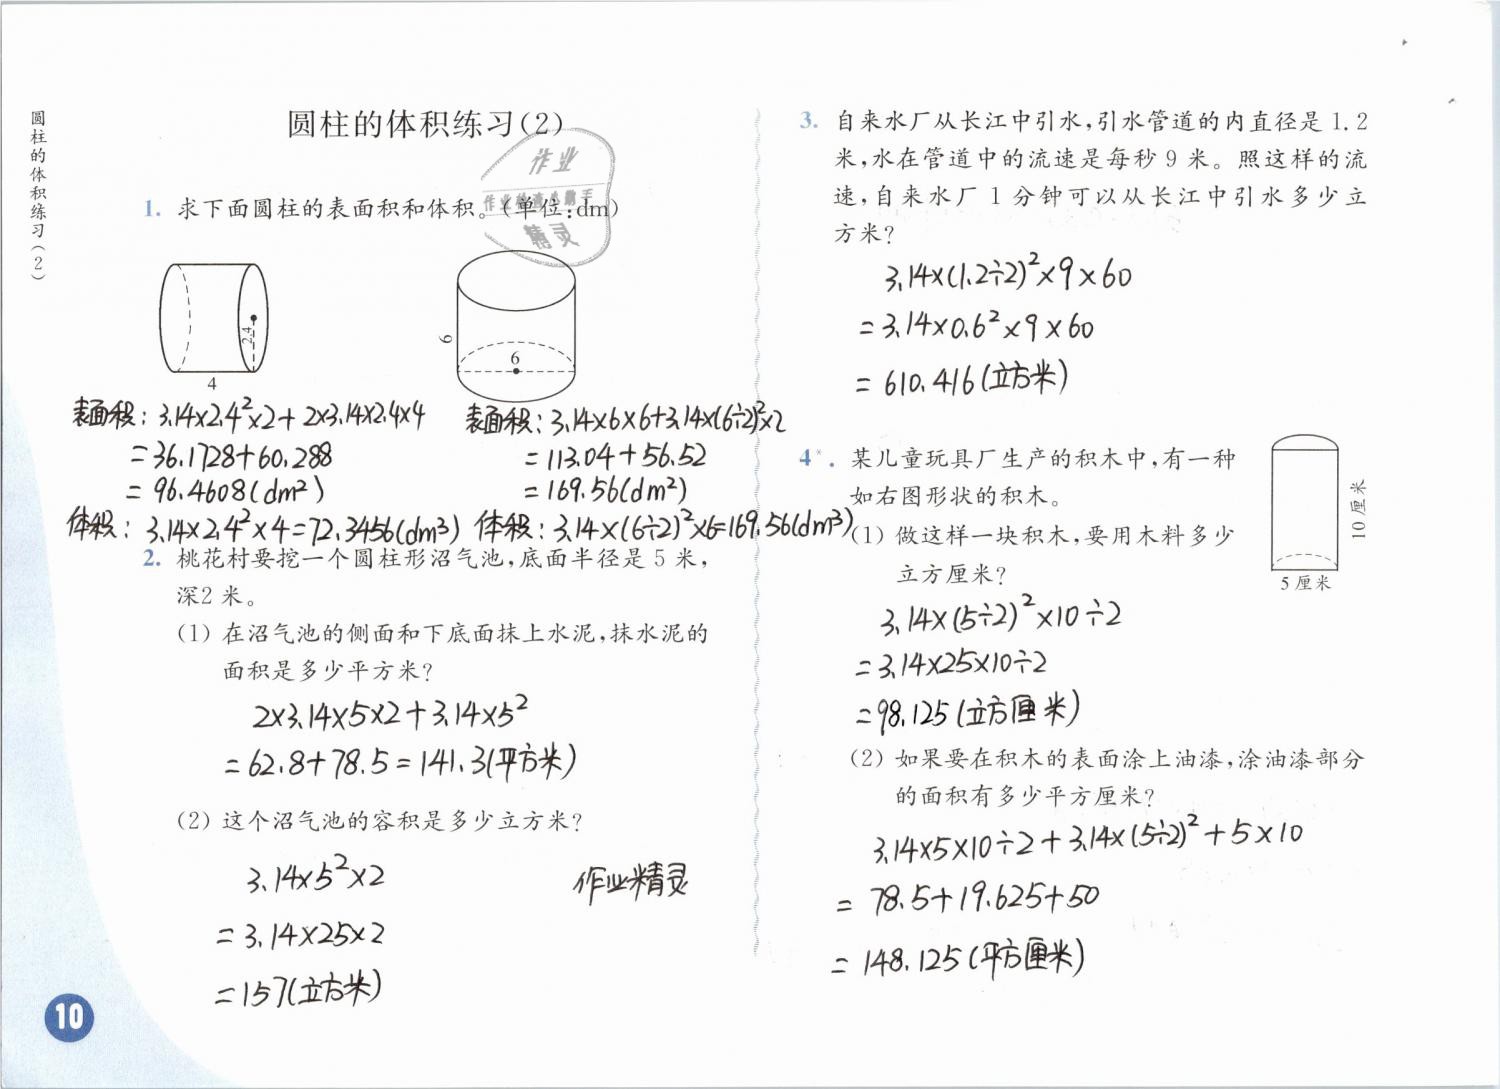 圆柱的体积练习(2)
圆柱的体积练习(2)
作业
作业的速查助手
精灵
1. 求下面圆柱的表面积和体积。(单位:dm)
2.4
4
6
6
表面积: 3.14×2.4²×2+2×3.14×2.4×4
=36.1728+60.288
=96.4608(dm²)
体积: 3.14×2.4²×4=72.3456(dm³)
表面积: 3.14×6×6+3.14×(6÷2)²×2
=113.04+56.52
=169.56(dm²)
体积: 3.14×(6÷2)²×6=169.56(dm³)
2. 桃花村要挖一个圆柱形沼气池,底面半径是 5 米,
深2 米。
(1) 在沼气池的侧面和下底面抹上水泥,抹水泥的
面积是多少平方米?
2×3.14×5×2+3.14×5²
=62.8+78.5=141.3(平方米)
(2) 这个沼气池的容积是多少立方米?
3.14×5²×2
=3.14×25×2
=157(立方米)
作业精灵
10
3. 自来水厂从长江中引水,引水管道的内直径是 1.2
米,水在管道中的流速是每秒 9 米。照这样的流
速,自来水厂 1 分钟可以从长江中引水多少立
方米?
3.14×(1.2÷2)²×9×60
=3.14×0.6²×9×60
=610.416(立方米)
4*. 某儿童玩具厂生产的积木中,有一种
如右图形状的积木。
10 厘米
5 厘米
(1) 做这样一块积木,要用木料多少
立方厘米?
3.14×(5÷2)²×10÷2
=3.14×25×10÷2
=98.125(立方厘米)
(2) 如果要在积木的表面涂上油漆,涂油漆部分
的面积有多少平方厘米?
3.14×5×10÷2+3.14×(5÷2)²+5×10
=78.5+19.625+50
=148.125(平方厘米)